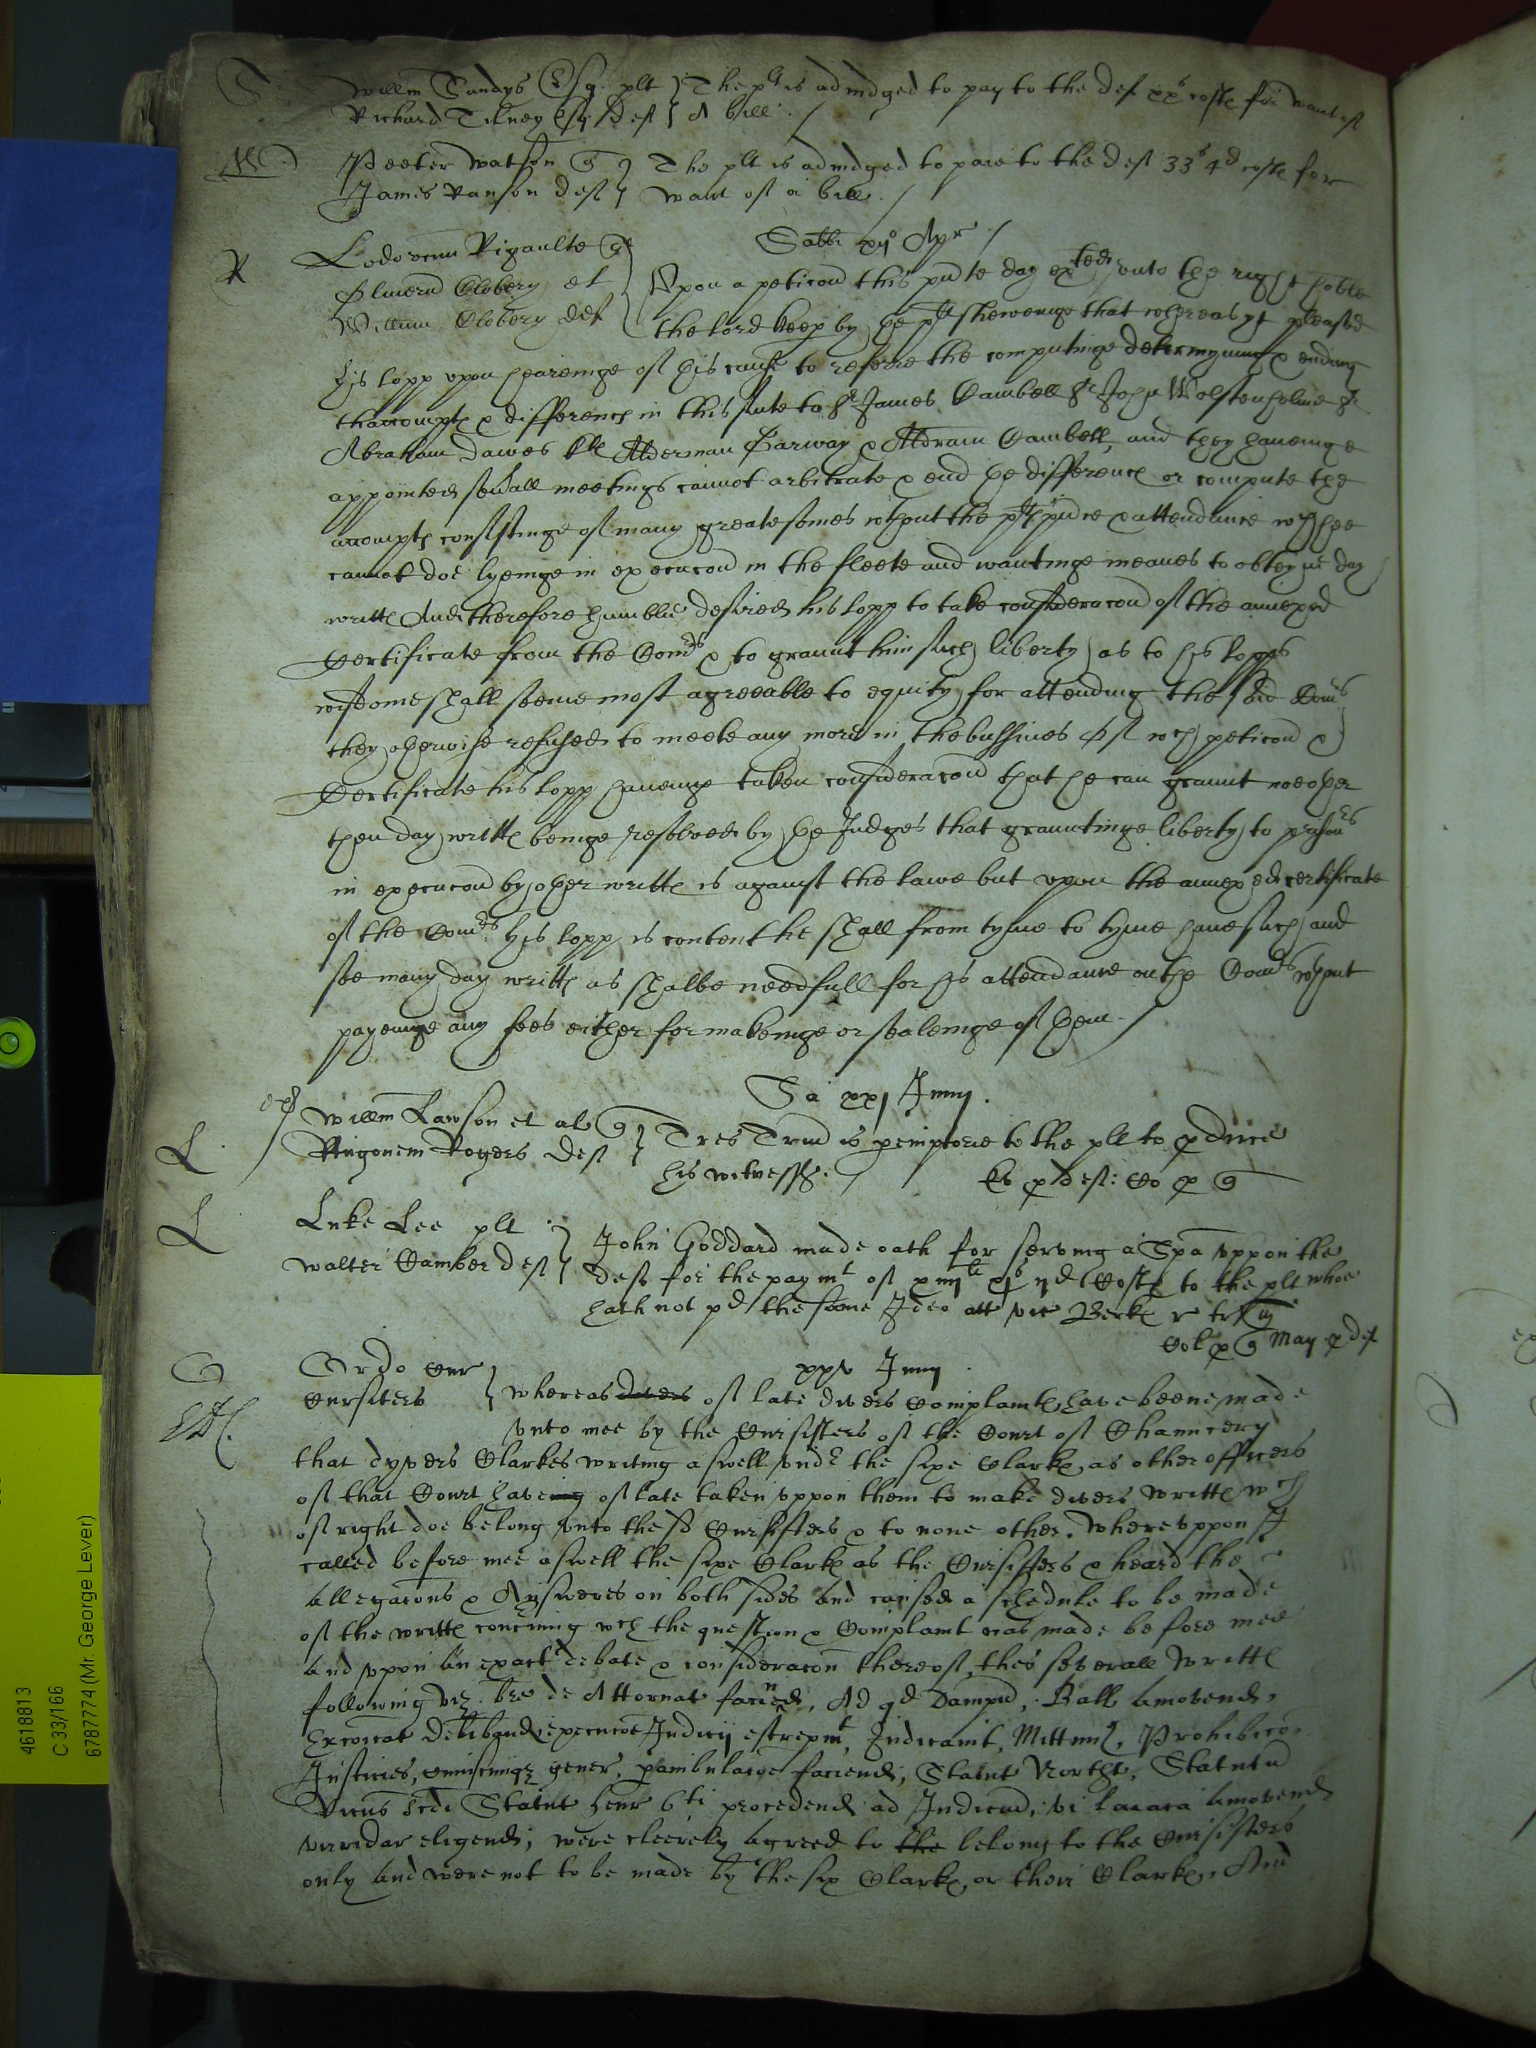 S Willm Sandys Esq. plt } The plt is adiudged to pay to the def xxs costs for want of
Richard Tilney Esq. Deft } A bill /
M Peeter Watson q } The plt is adiudged to paie to the deft 33s 4d costs for
James Ranson deft } want of a bill. /
Sabbi Apr /
R Lodovicum Rigaulte q
Olwerū Clobery et } Vpon a peticon this pnte day exted vnto the right hoble
Willum Clobery def } the lord keep by the plt shewenge that whereas yt pleased
his lopp vpon heareinge of this cause to referre the computinge determyning & ending
thaccompts & differences in this sute to Sr James Cambell Sr John Wolstenholme Sr
Abraham Dawes kts Alderman Garway & Aldram Cambell, and they haueinge
appointed seuall meetings cannot arbitrate & end the differences or compute the
accompts consistinge of many greate somes wthout the plts pnce & attendance wch hee
cannot doe lyeinge in execucon in the fleete and wantinge meanes to obteyne day
writts And therefore humblie desired his lopp to take consideracon of the annexed
Certificate from the Comrs & to graunt him such liberty as to his lopps
wisdome shall seeme most agreeable to equity for attending the said Comrs
they otherwise refused to meete any more in the bussines Of wch peticon &
Certificate his lopp haueinge taken consideracon that he can graunt noe other
then day writts beinge resolved by the Judges that grauntinge liberty to prisonrs
in execucon by other writts is against the lawe but vpon the annexed certificate
of the Comrs his lopp is content he shall from tyme to tyme haue such and
soe many day writts as shalbe needfull for his attendance on the Comrs wthout
payeinge any fees either for makeinge or sealeinge of them. /
Sa xxj Junij.
L Willm Lawson et al q } Tres Trin is pemptorie to the plt to pduce
Hugonem Rogers Deft } his witnesses. / p deft: Co p q
L Luke Lee plt } John Goddard made oath for serving a Spa vppon the
Walter Camber deft } deft for the paymt of xiiijli xjs ijd Costs to the plt whoe
hath not pd the same Ideo att vic Berks r tr
Col p q May p def
O Ordo Cur xxv Junij.
Cursiters } Whereas divers of late divers Complants have beene made
vnto mee by the Cursisters of the Court of Chauncery
that dyvers Clarkes writing aswell vndr the sixe Clarks, as other officers
of that Court haveing of late taken vppon them to make divers writts wch
of right doe belong vnto the sd Cursisters & to none other. Wherevppon I
called before mee aswell the sixe Clarks as the Cursisters & heard the
allegacons & Answeres on both sides and caused a schedule to be made
of the writts concerning wch the question & Complaint was made before mee
and vppon an exact debate & consideracon thereof, thes severall Writts
following viz. bre de Attornat faciend, Ad qd Dampnū, Ball amovend,
Excoicat Delibandi execucōe Judicij estrepmt, Indicamt, Mittimus, Prohibicō,
Justicies, gener, pambulacōe faciend, Statut Northt, Statutū
Statut henr 6ti procedend ad Judicud; vi laiaca amovend
virridar eligend; were cleerely agreed to the belong to the Cursisters
only and were not to be made by the six Clarks, or their Clarks, And
4618813
C 33/166
6787774 (Mr. George Lever)